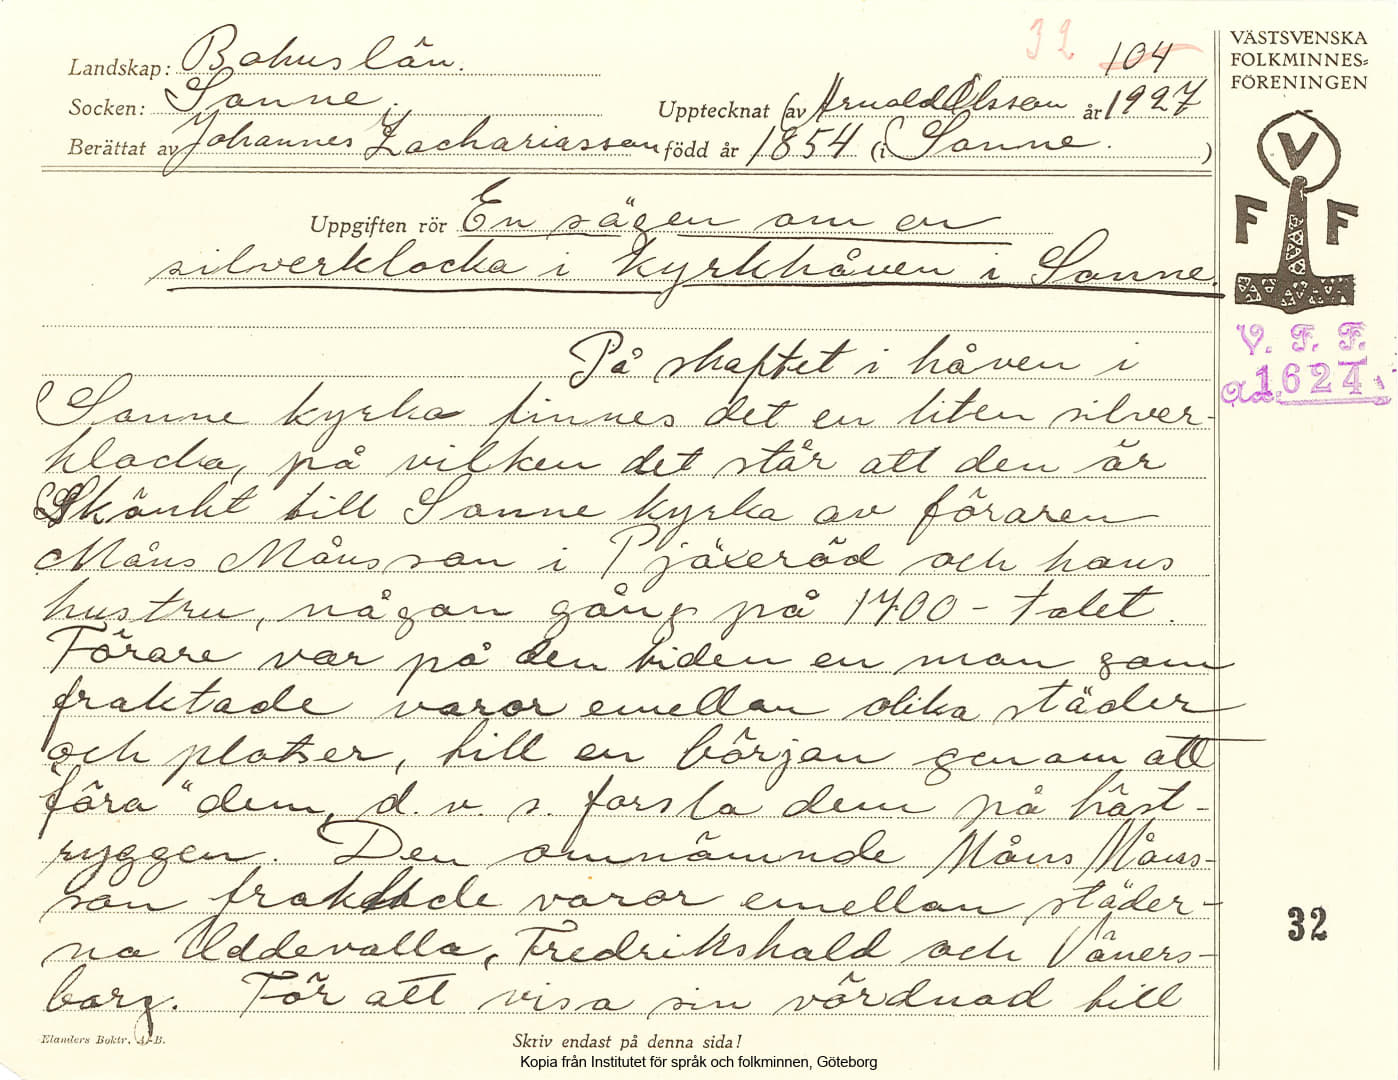 32 104
Landskap: Bohuslän.
Socken: Sanne. Upptecknat av Arnold Olsson år 1927
Berättat av Johannes Zachariasson född år 1854 (i Sanne. )
VÄSTSVENSKA
FOLKMINNES=
FÖRENINGEN
V
F F
V. F. F.
1624
Uppgiften rör En sägen om en
silverklocka i kyrkhåven i Sanne.
På skaftet i håven i
Sanne kyrka finnes det en liten silver-
klocka, på vilken det står att den är
Skänkt till Sanne kyrka av föraren
Måns Månsson i Pjäxeröd och hans
hustru, någon gång på 1700-talet.
Förare var på den tiden en man som
fraktade varor emellan olika städer
och platser, till en början genom att
"föra" dem, d. v. s. forsla dem på häst-
ryggen. Den omnämnde Måns Måns-
son fraktade varor emellan städer-
na Uddevalla, Fredrikshald och Väners-
borg. För att visa sin vördnad till
32
Elanders Boktr. A.-B.
Skriv endast på denna sida!
Kopia från Institutet för språk och folkminnen, Göteborg